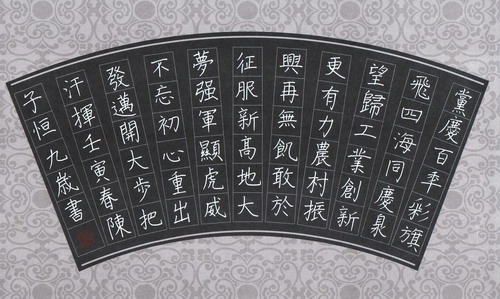 黨慶百年彩旗
飛四海同慶泉
望歸工業創新
更有力農村振
興再無飢敢於
征服新高地大
夢强軍顯虎威
不忘初心重出
發邁開大步把
汗揮壬寅春陳
子恒九歲書